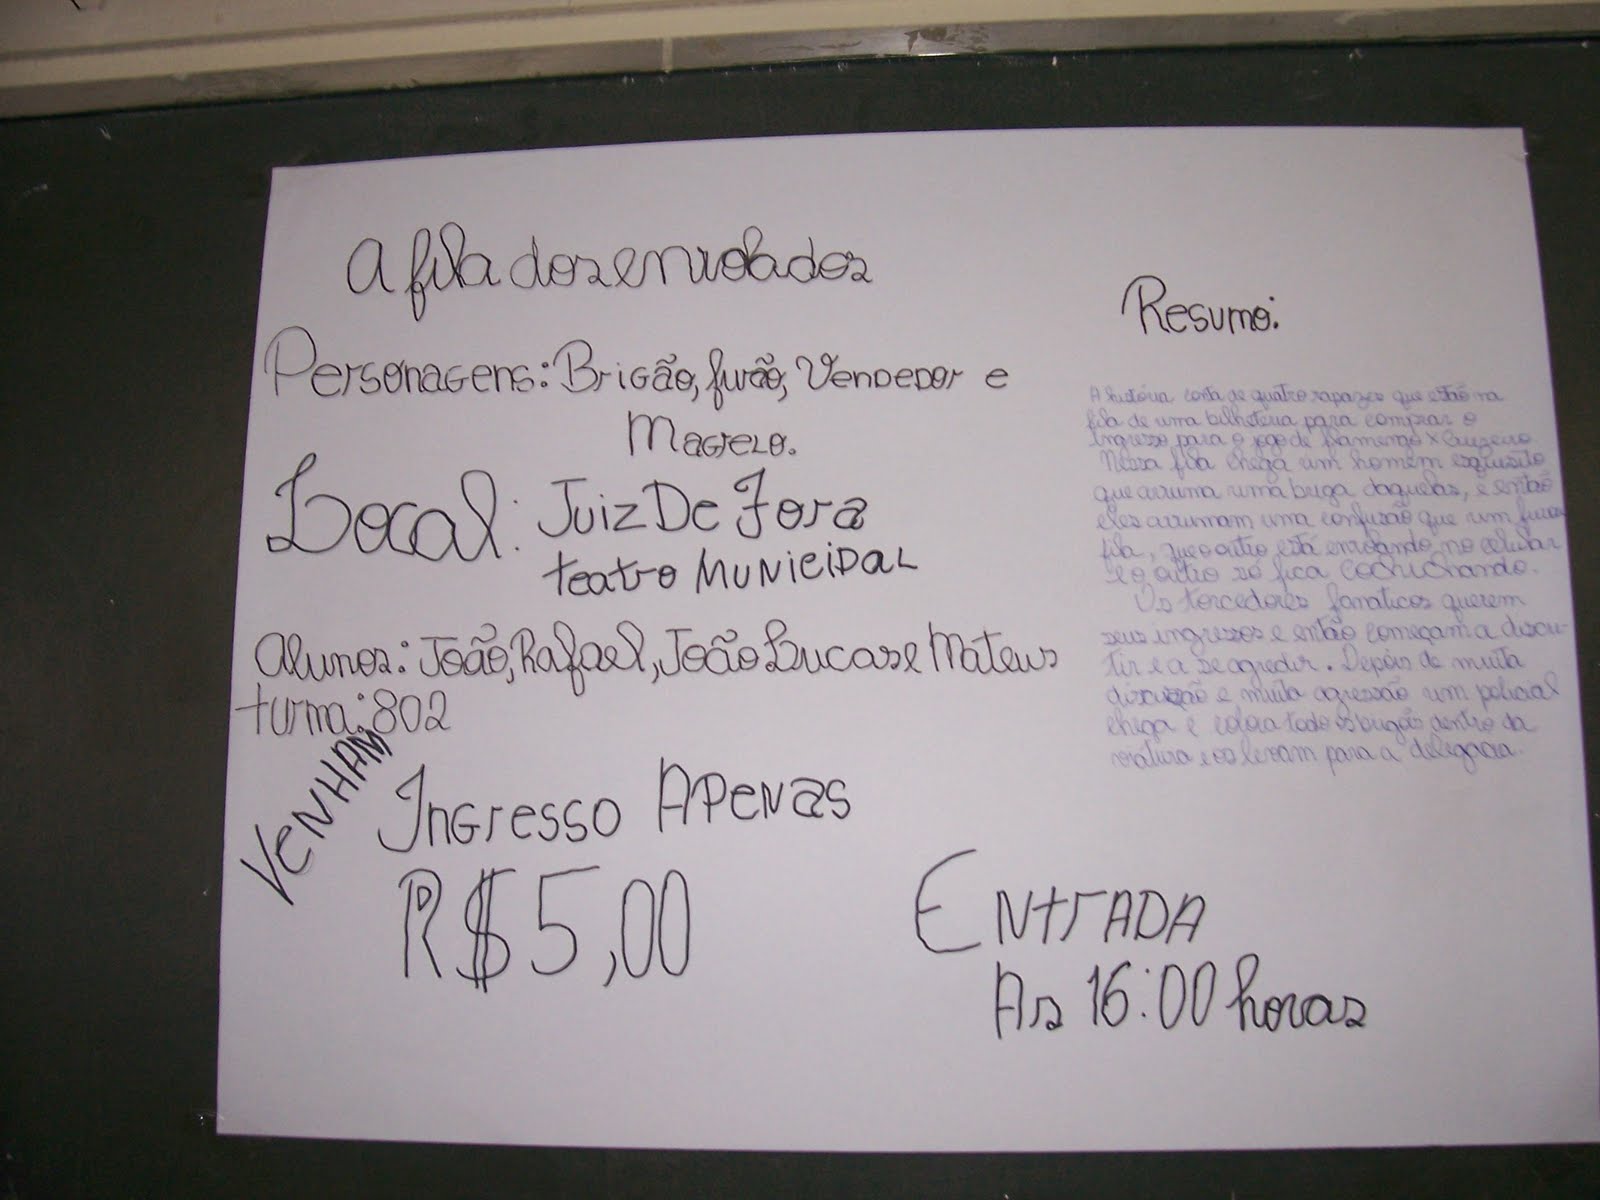 A fila dos enrolados
Personagens: Brigão, furão, Vendedor e
Magrelo.
Local: Juiz De Fora
teatro Municipal
Alunos: João, Rafael, João Lucas e Mateus
turma: 802
VENHAM
Ingresso Apenas
R$5,00
Resumo:
A história conta de quatro rapazes que estão na
fila de uma bilheteria para comprar o
ingresso para o jogo de flamengo x Cruzeiro.
Nessa fila chega um homem esquisito
que arruma uma briga daquelas, e então
eles arrumam uma confusão que um furou
fila, que o outro está enrolando no celular
e o outro só fica cochichando.
Os torcedores fanaticos querem
seus ingressos e então começam a discu-
tir e a se agredir. Depois de muita
discussão e muita agressão um policial
chega e coloca todos brigões dentro da
viatura e os levam para a delegacia.
ENTRADA
As 16:00 horas